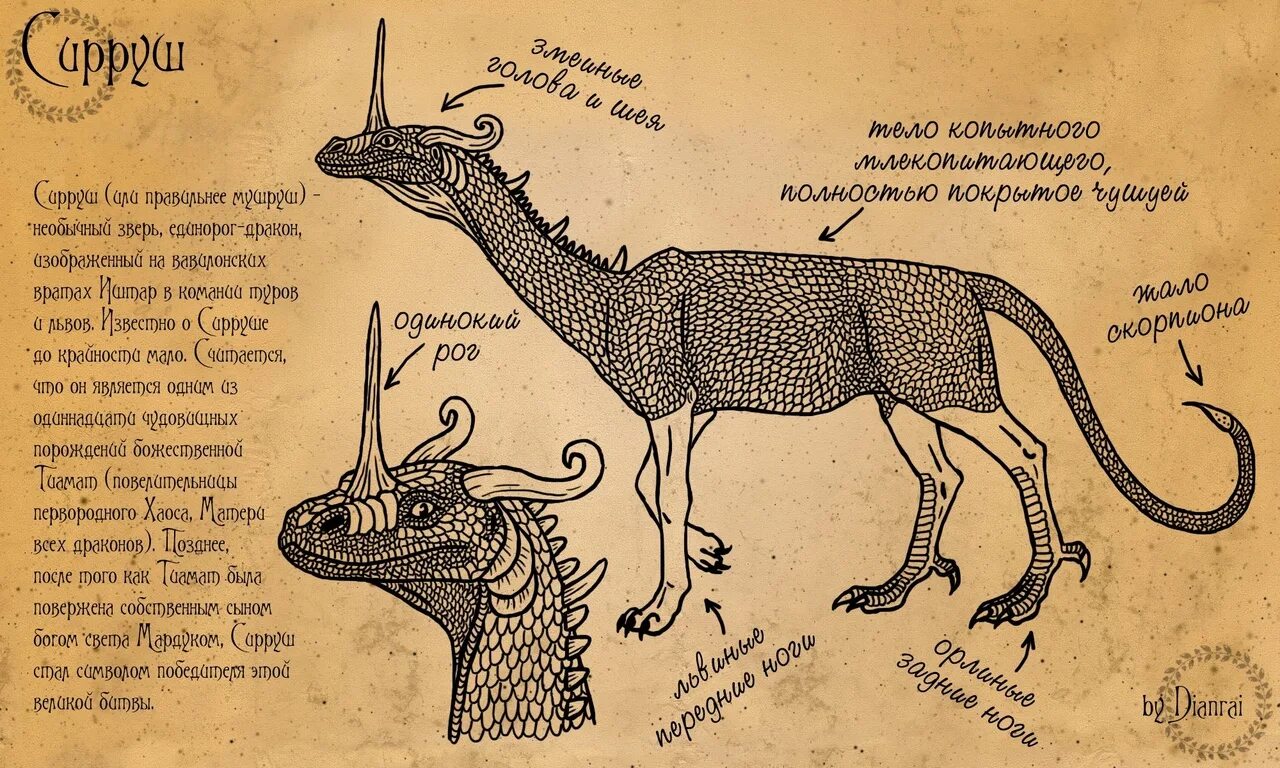 Сирруш
Сирруш (или правильнее мушруш) -
необычный зверь, единорог-дракон,
изображенный на вавилонских
вратах Иштар в команії туров
и львов. Известно о Сирруше
до крайности мало. Считается,
что он является одним из
одиннадцати чудовищных
порождений божественной
Тиамат (повелительницы
первородного Хаоса, Матери
всех драконов). Позднее,
после того как Тиамат была
повержена собственным сыном
богом света Мардуком, Сирруш
стал символом победителя этой
великой битвы.
змеиные
голова и шея
тело копытного
млекопитающего,
полностью покрытое чушуей
жало
скорпиона
одинокий
рог
львиные
передние ноги
орлиные
задние ноги
by Dianrai